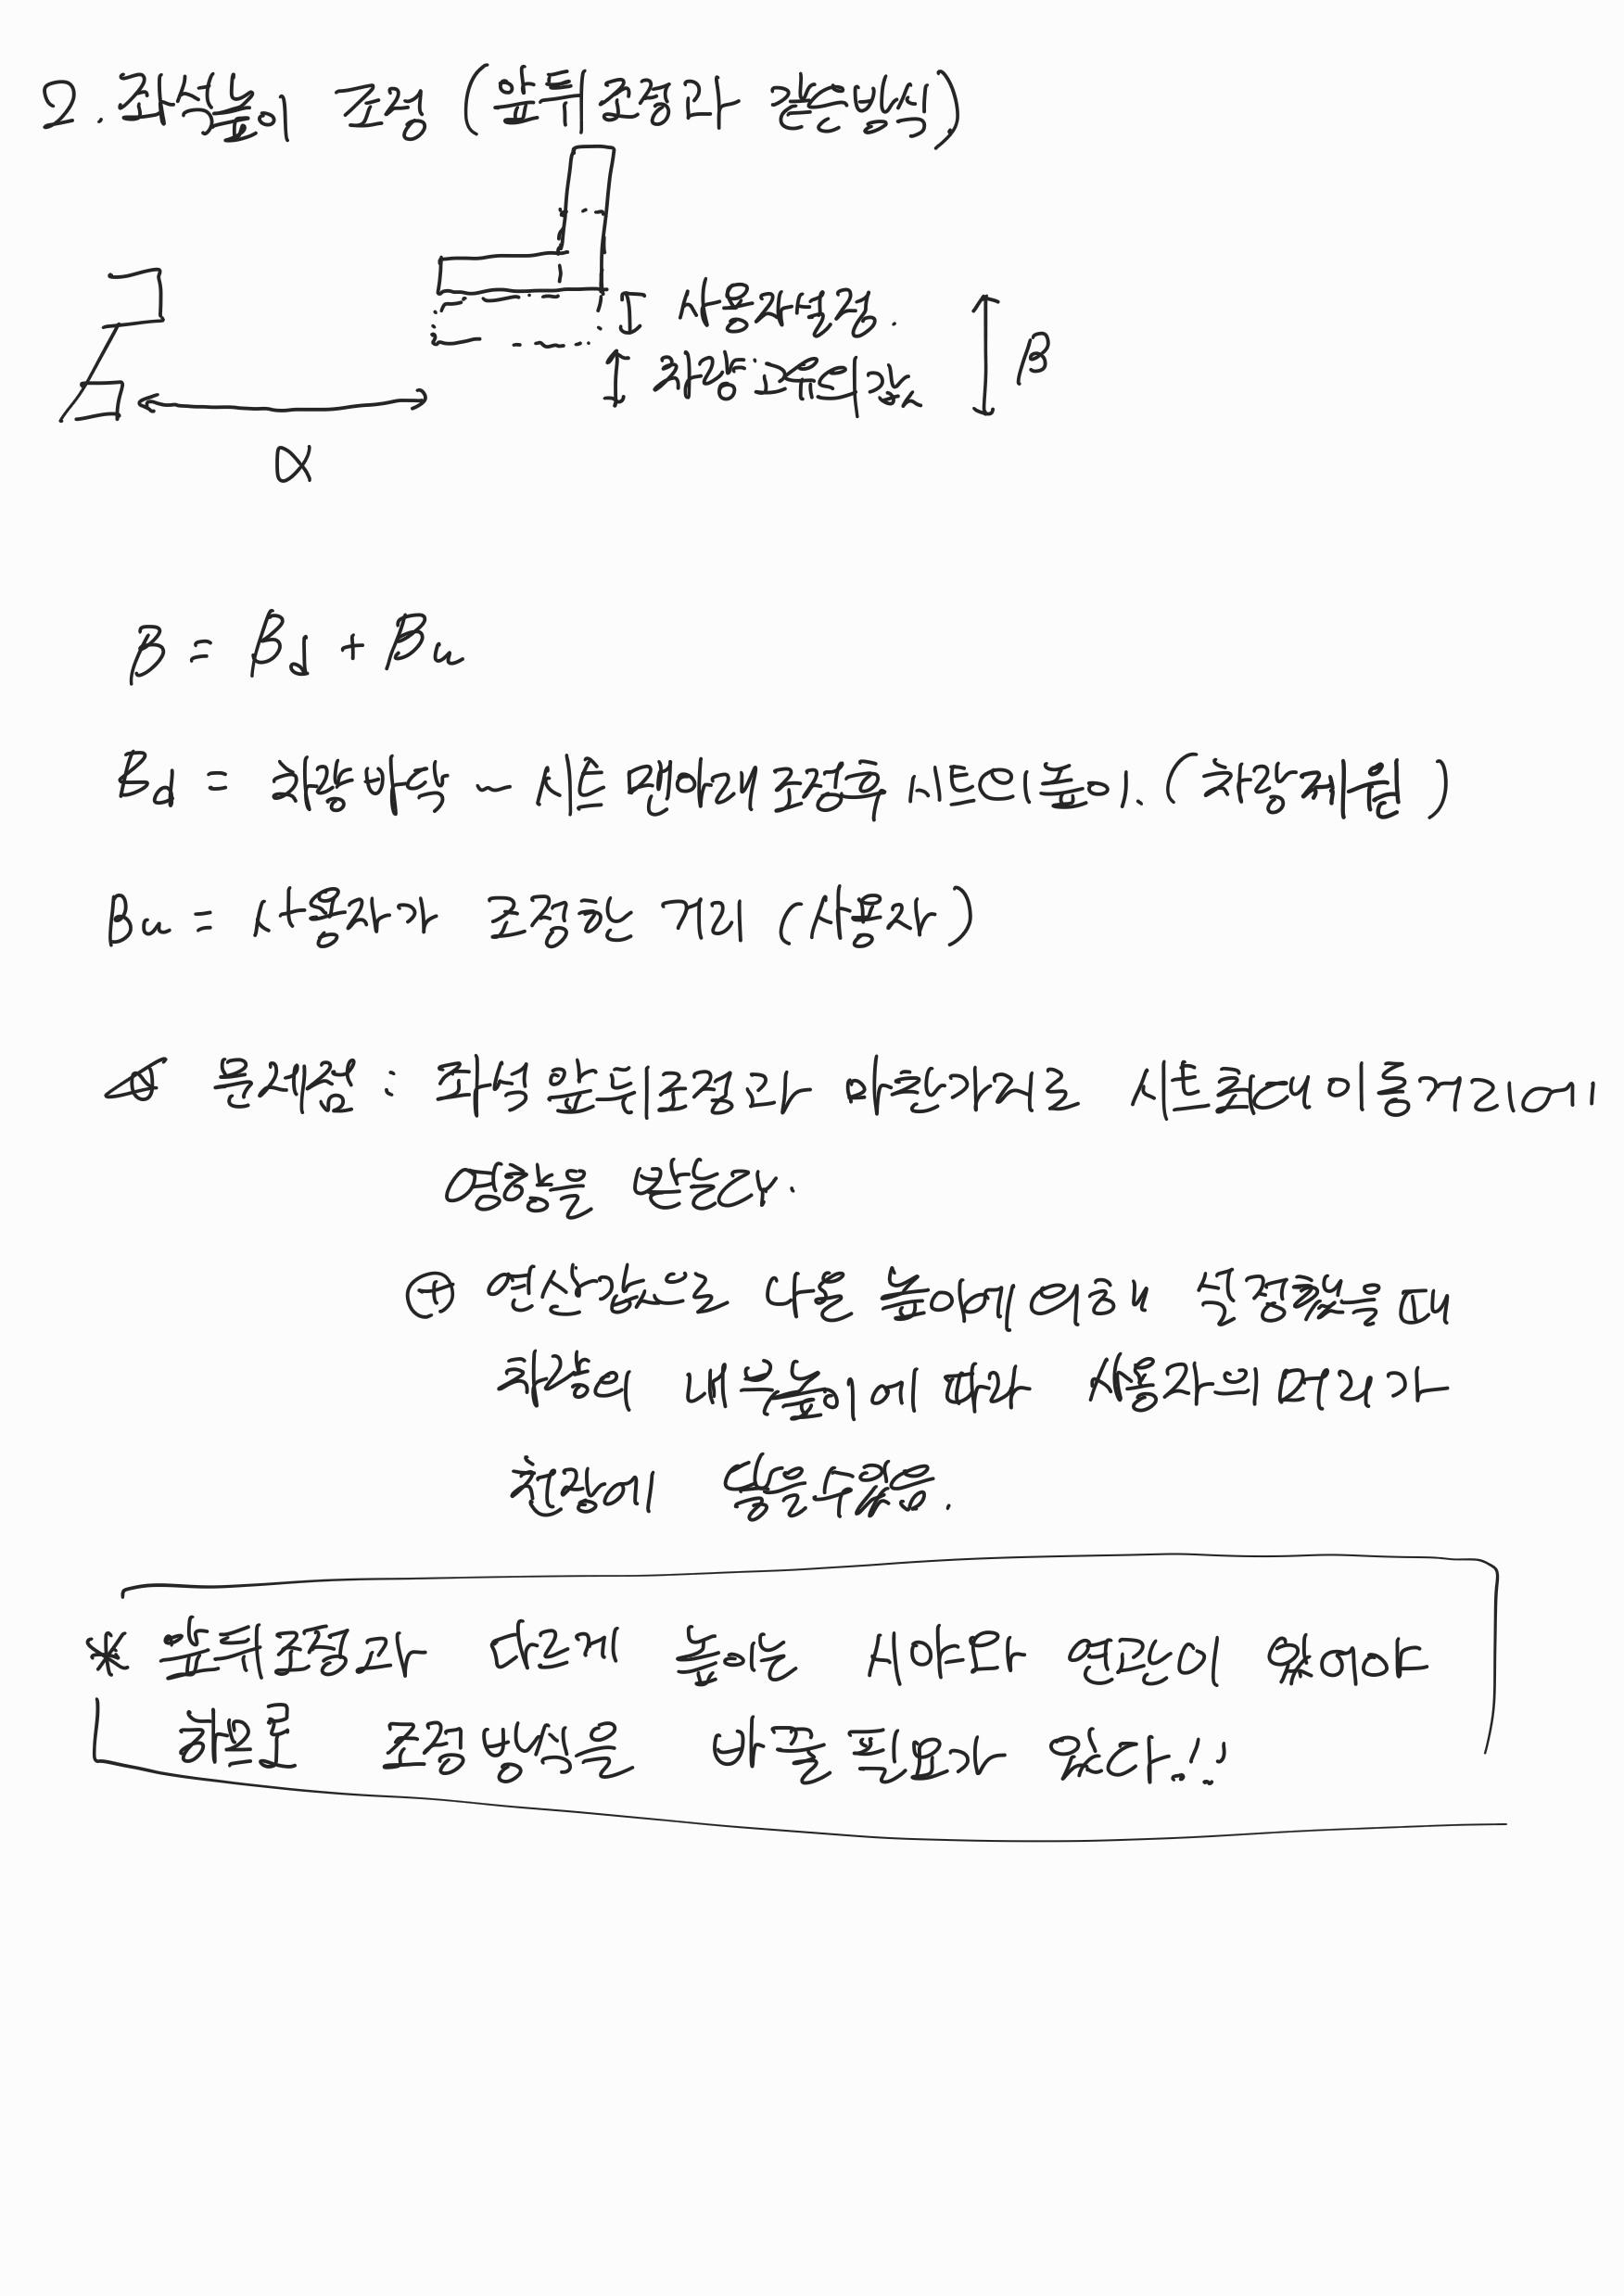 2. 좌석높이 조정 (앞뒤조정과 같은방식)
사용자설정.
차량고유의값
β
α
B = Bd + Bu
Bd = 차량바닥 ~ 시트 밑바닥까지의높이. (차량제원)
Bu = 사용자가 조정한 거리 (사용자)
문제점 : 좌석앞뒤조정과 마찬가지로 시트 높이에 이동거리이
영향을 받는다.
⊕ 예상값으로 나온 높이에의해 설정했을때
차량의 내부높이에 따라 사용자의머리가
천장에 닿을수있음.
※ 앞뒤조정과 다르게 높이는 시야와 연관이 있어야
하므로 조정방식을 바꿀필요가 있다..!!